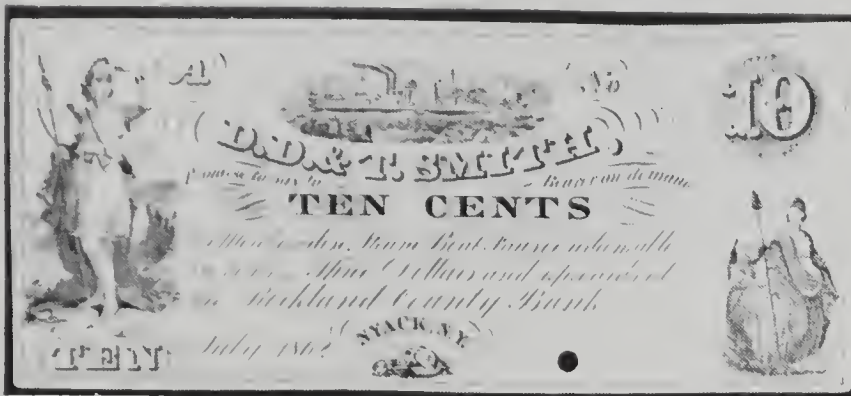 A No
10
D.D. & T. SMITH,
promise to pay to Bearer on demand
TEN CENTS
Steam Boat
Dollars and upwards at
Rockland County Bank
July 1862 NYACK, N.Y.
TEN